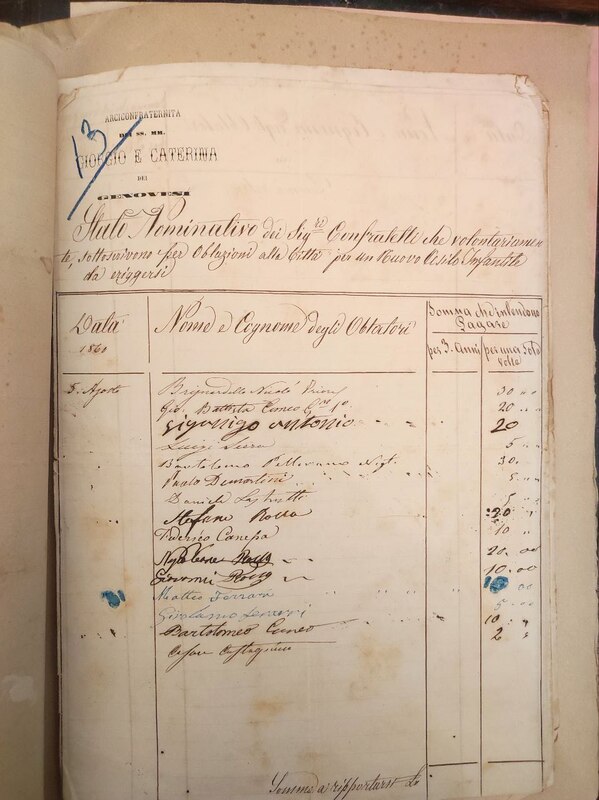 13
ARCICONFRATERNITA
DEI SS. MM.
GIORGIO E CATERINA
DEI
GENOVESI
Stato Nominativo dei Sigri Confratelli che volontariamen
te, sottoscrivono per Oblazioni alla Città per un Nuovo Asilo Infantile
da eriggersi
Data
1861
Nome e Cognome degli Oblatori
Somma che intendono
Pagare
per 3. Anni
per una sola
volta
5. Agosto
Brignardello Nicolò 30
Gio. Battista Cuneo 20
Antonio 20
Luigi Serra 5
Bartolomeo Pellerano 30.
Paolo Demartini 5
Daniele 5
Stefano Rocca 20
Federico Canepa 10
Napoleone Rocca 20. 00
Giovanni Rocca 10. 00
Matteo Ferrara 10 00
Girolamo 5 00
Bartolomeo Cuneo 10
Cesare Castagnino 2
Somma a ripportarsi